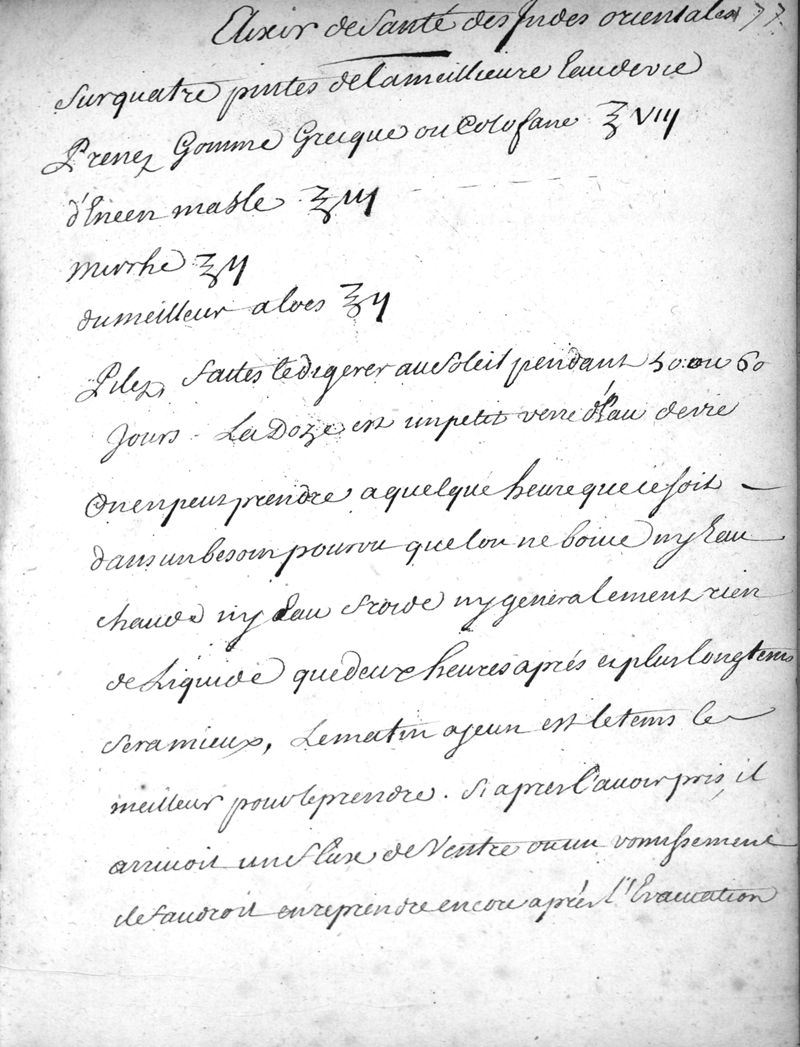 Elixir de Santé des Indes orientales 77
Sur quatre pintes de la meillieure Eau de vie
Prenez Gomme Grecque ou Colofane ℥ viij
d'Encen masle ℥ iij
mirrhe ℥ ij
du meilleur aloes ℥ ij
Pilez, faites le digerer au Soleil pendant 50 ou 60
Jours - La Doze est un petit verre d'Eau de vie
On en peut prendre a quelque heure que ce soit -
dans un besoin pourvu que lon ne boive ny Eau
chaude ny Eau froide ny generalement rien
de Liquide que deux heures aprés et plus longtems
sera mieux, Le matin a jeun est le tems le
meilleur pour le prendre. Si apres l'avoir pris, il
arrivoit un flux de Ventre ou un vomissement
il faudroit en reprendre encore aprés l'Evacuation